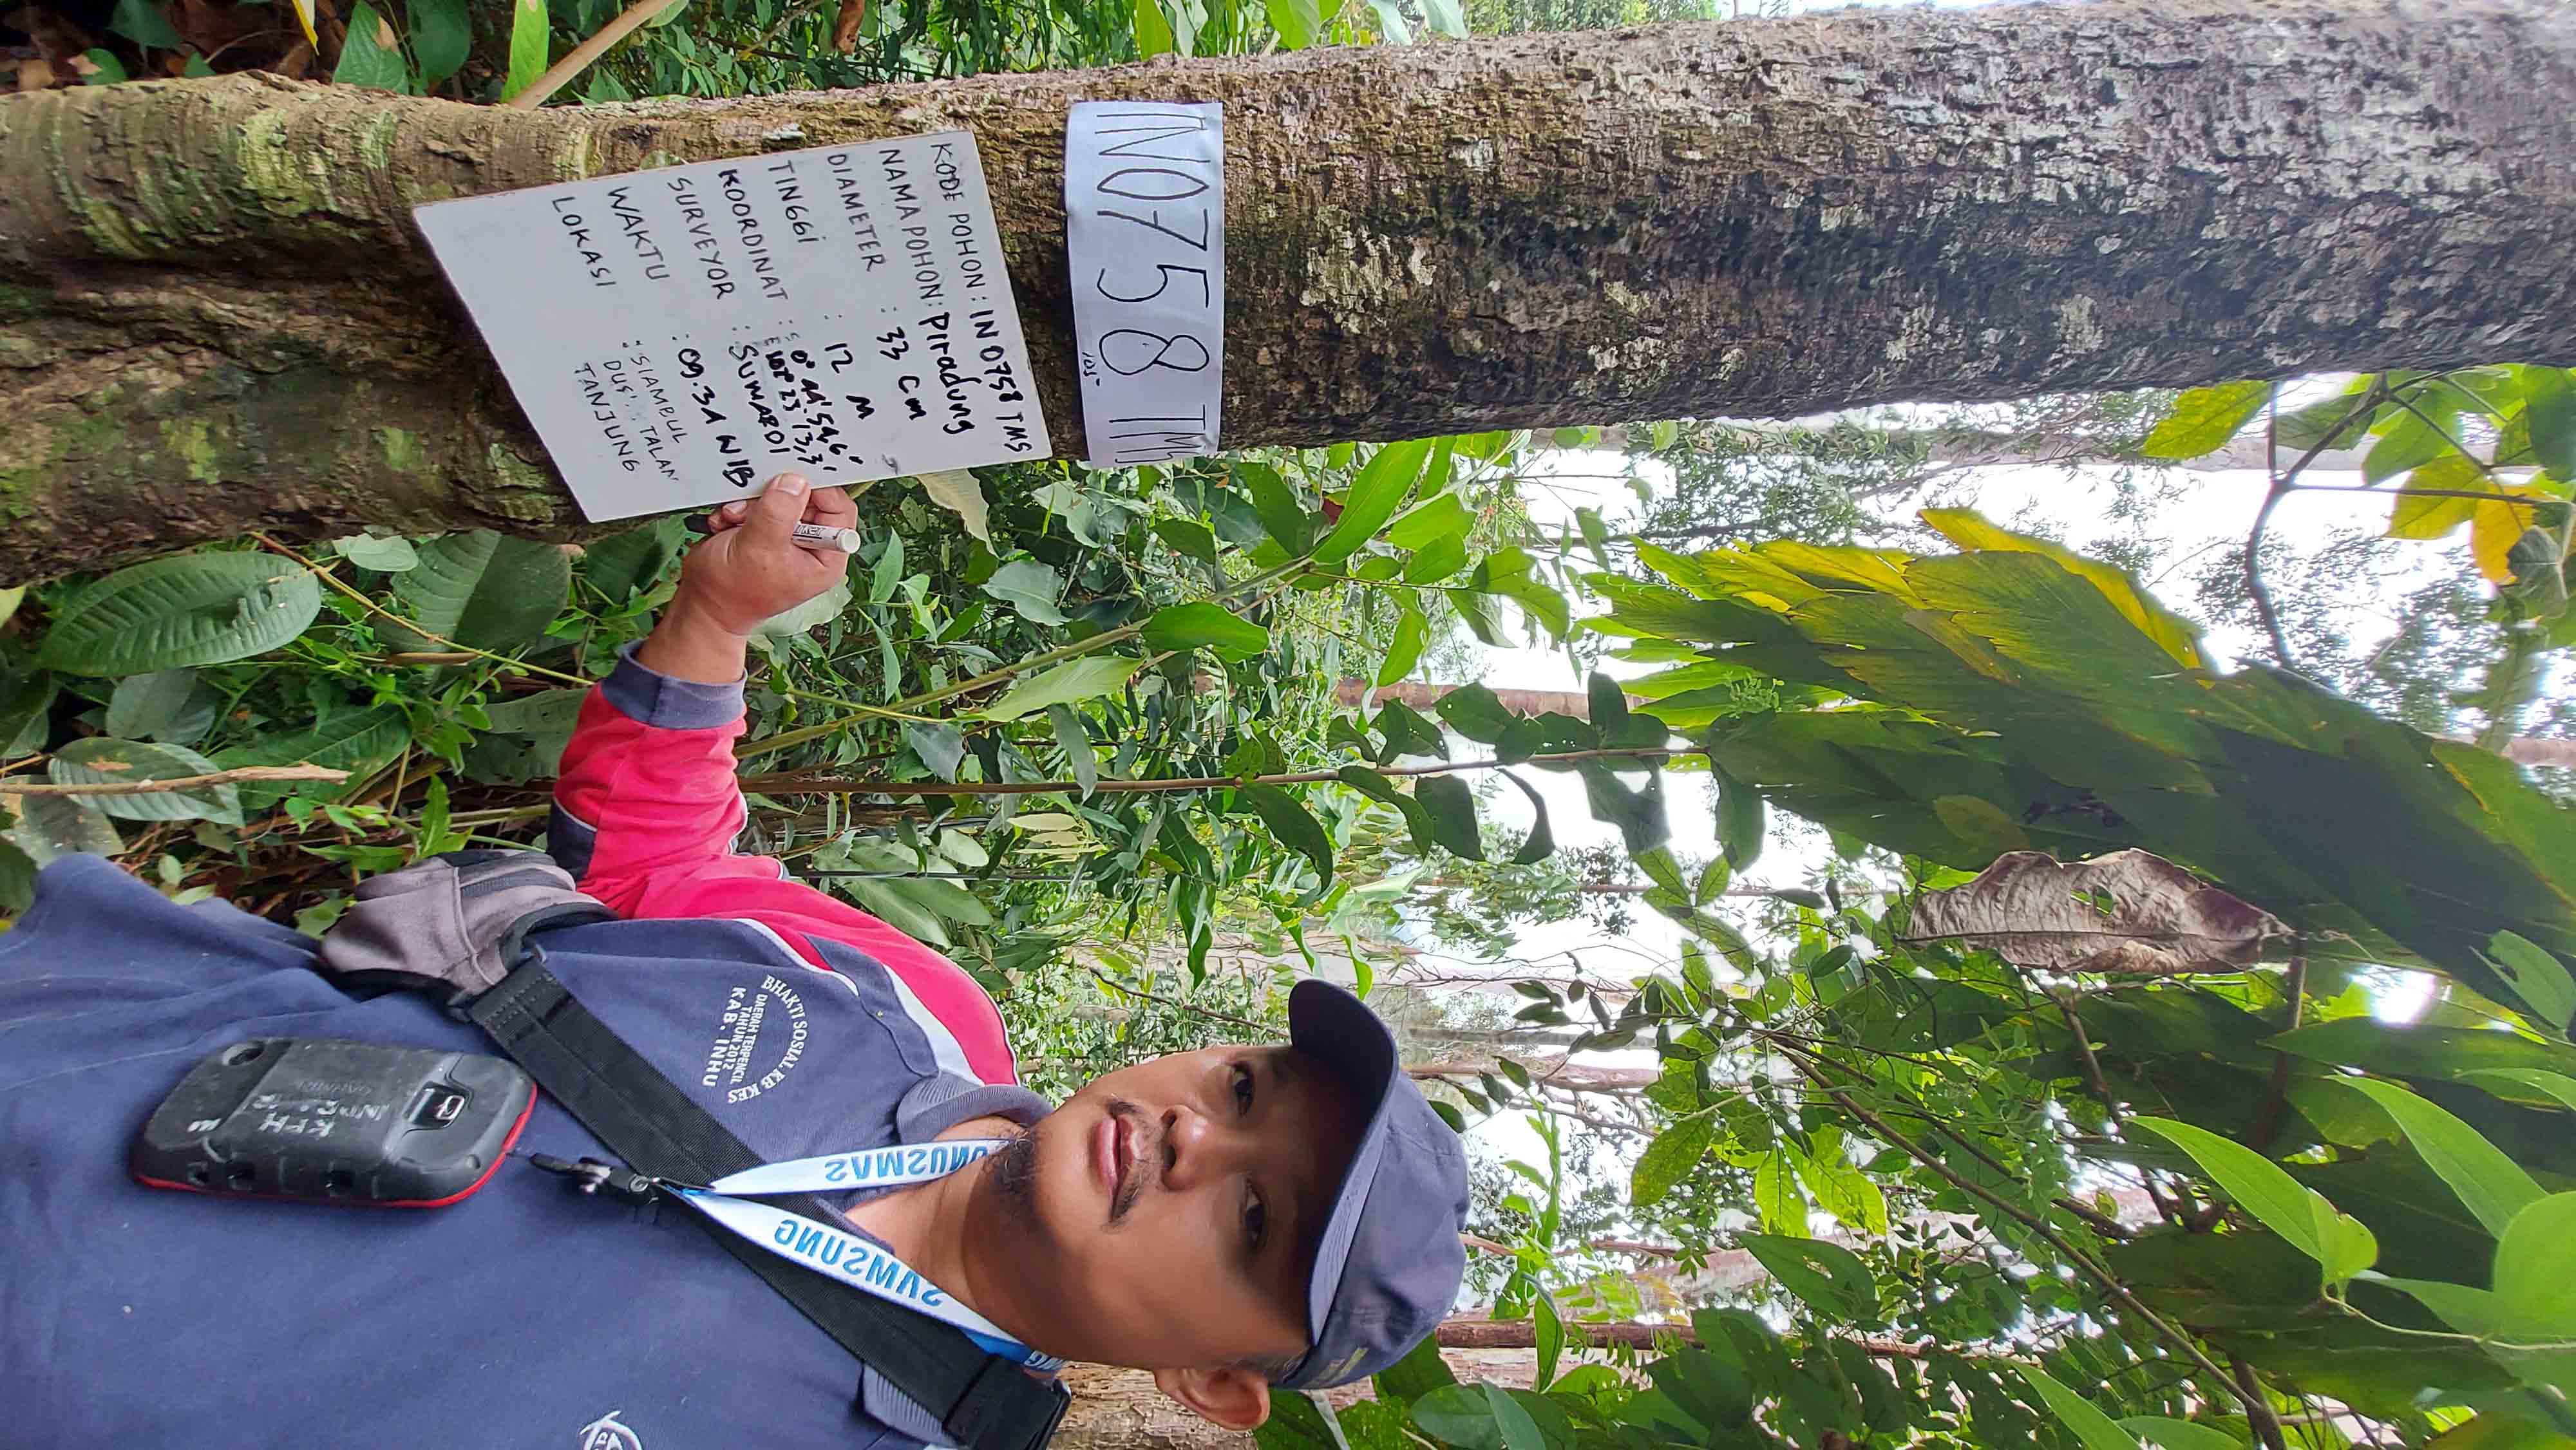 IN0758 TMS
105
KODE POHON : IN0758 TMS
NAMA POHON : Piradung
DIAMETER : 33 cm
TINGGI : 12 M
KOORDINAT : S 0° 44' 54,6"
E 102° 23' 13,3"
SURVEYOR : SUMARDI
WAKTU : 09.34 WIB
LOKASI : SIAMBUL
TALAN
TANJUNG
BHAKTI SOSIAL KB KES
DAERAH TERPENCIL
TAHUN 2012
KAB. INHU
SAMSUNG
SAMSUNG
KPH